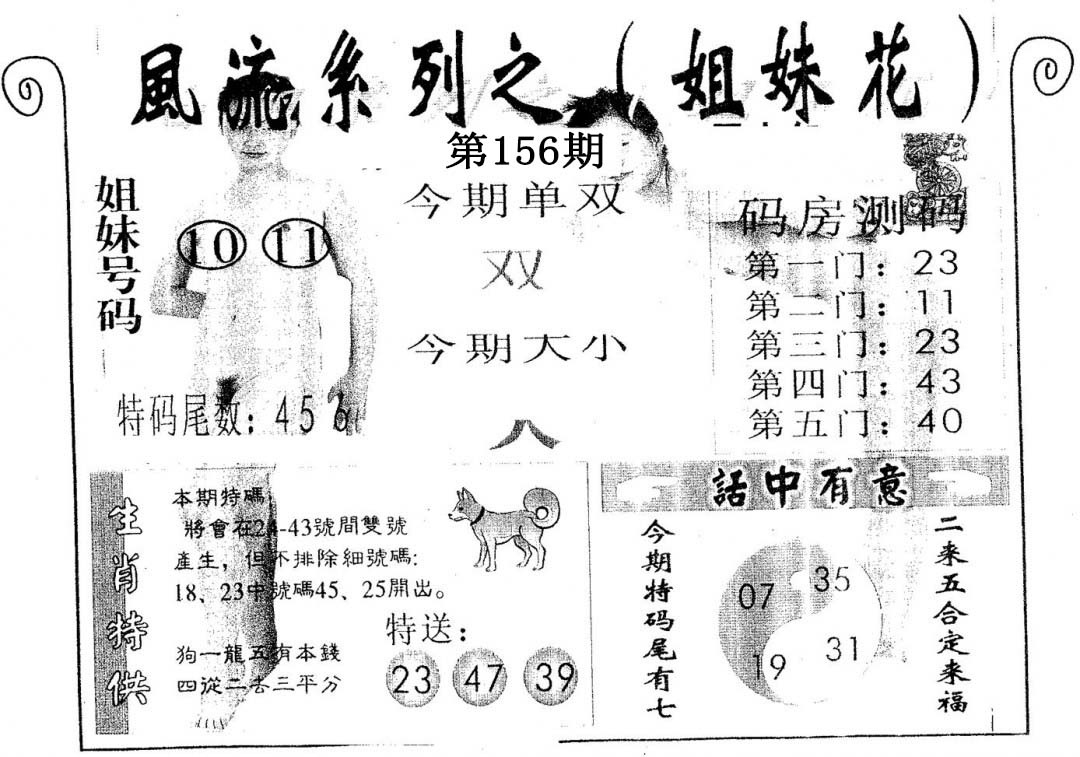 風流系列之（姐妹花）
第156期
姐妹号码
10 11
特码尾数：456
今期单双
双
今期大小
码房测码
第一门：23
第二门：11
第三门：23
第四门：43
第五门：40
生肖特供
本期特碼，
將會在24-43號間雙號
產生，但不排除細號碼：
18、23中號碼45、25開出。
狗一龍五有本錢
四從二去三平分
特送：
23 47 39
話中有意
今期特码尾有七
07 35
19 31
二来五合定来福